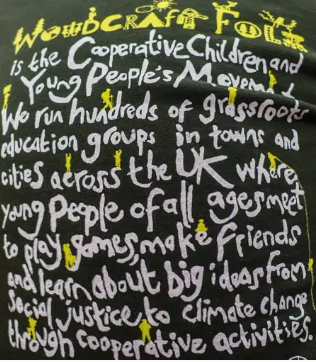 WOODCRAFT FOLK
is the Cooperative Children and
Young People's Movement
We run hundreds of grassroots
education groups in towns and
cities across the UK where
young people of all ages meet
to play games, make friends
and learn about big ideas from
social justice to climate change
through cooperative activities.